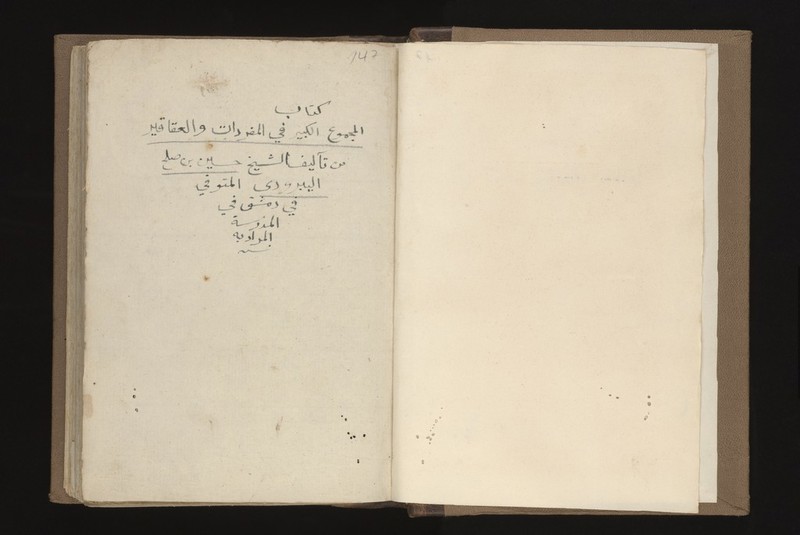 147
كتاب
المجموع الكبير في المفردات والعقاقير
من تآليف الشيخ حسين بن صلح
البيرودى المتوفي
في دمشق في
المدرسة
المرادية